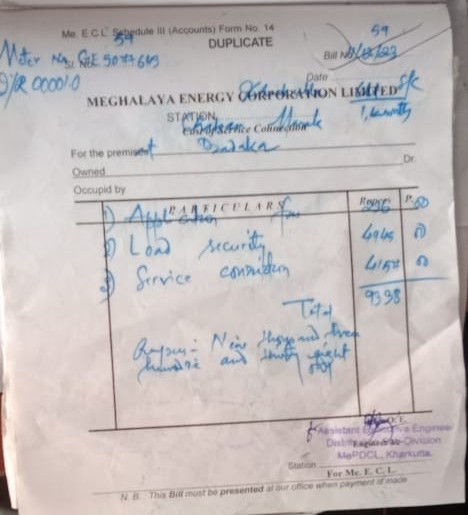 Me. E C L Schedule III (Accounts) Form No. 14
59
59
DUPLICATE
Meter No.
Bill No.
O/R 00001.0
Date
MEGHALAYA ENERGY CORPORATION LIMITED
STATION
Cost of Service Connection
For the premises
Owned Dr.
Occupid by
PARTICULARS Rupees P.
1) Application fee
2) Load security 4945
3) Service connection
Total 9338
Rupees:- Nine thousand three
hundred and thirty eight
only
Assistant Executive Engineer
MePDCL, Kharkutta.
Station
For Me. E. C. L.
N. B. This Bill must be presented at our office when payment of made